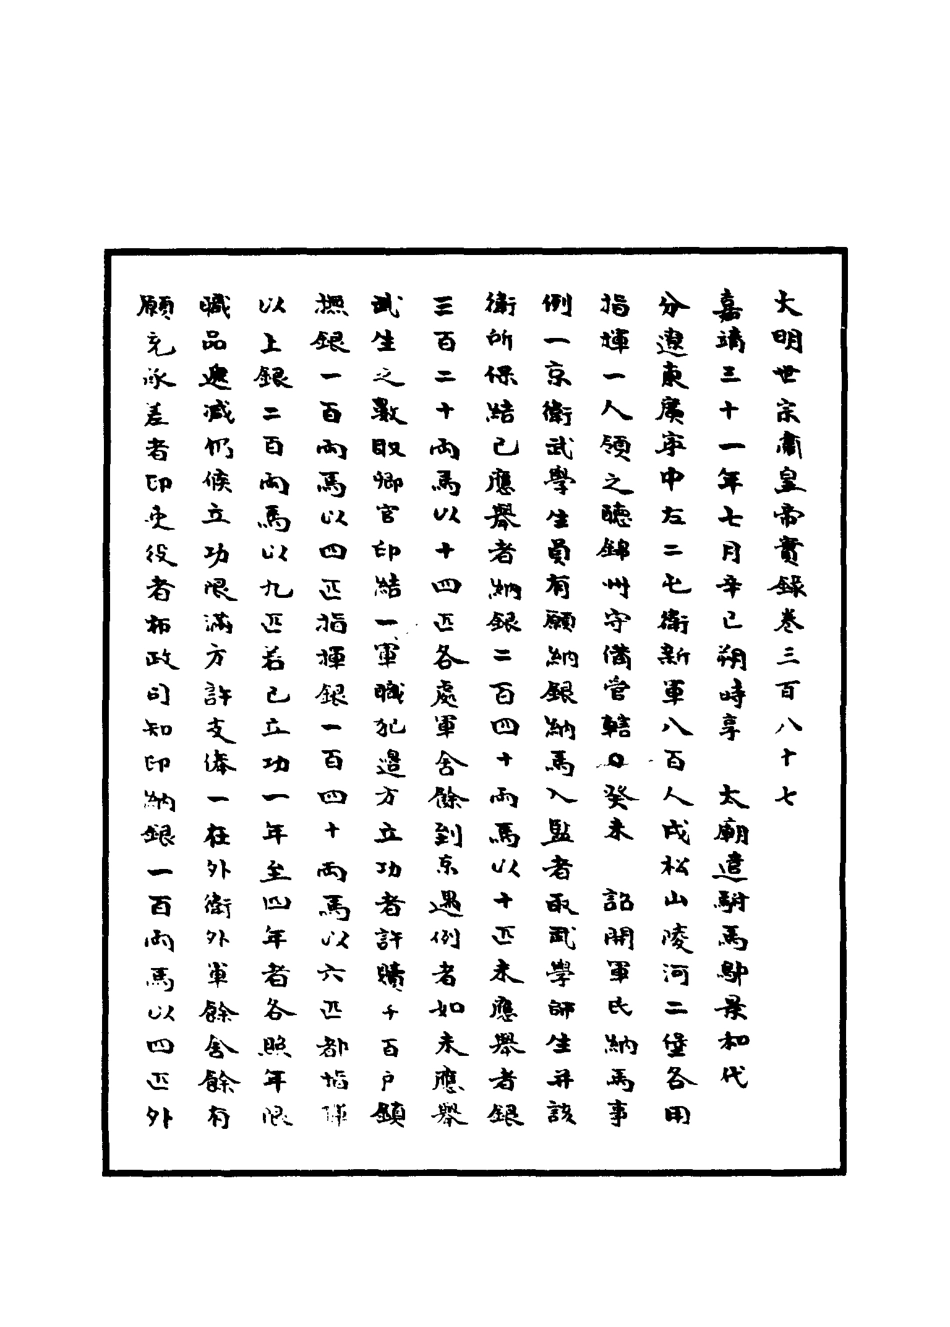 大明世宗肅皇帝實錄卷三百八十七
嘉靖三十一年七月辛巳朔時享　太廟遣駙馬鄔景和代
分遼東廣寧中左二屯衛新軍八百人戍松山陵河二堡各用
指揮一人領之聽錦州守備管轄○癸未　詔開軍民納馬事
例一京衛武學生員有願納銀納馬入監者取武學師生并該
衛所保結已應舉者納銀二百四十兩馬以十匹未應舉者銀
三百二十兩馬以十四匹各處軍舍餘到京遇例者如未應舉
武生之數取鄉官印結一軍職犯邊方立功者許贖千百戶鎮
撫銀一百兩馬以四匹指揮銀一百四十兩馬以六匹都指揮
以上銀二百兩馬以九匹若已立功一年至四年者各照年限
職品遞減仍候立功限滿方許支俸一在外衛外軍餘舍餘有
願充承差者印吏役者布政司知印納銀一百兩馬以四匹外